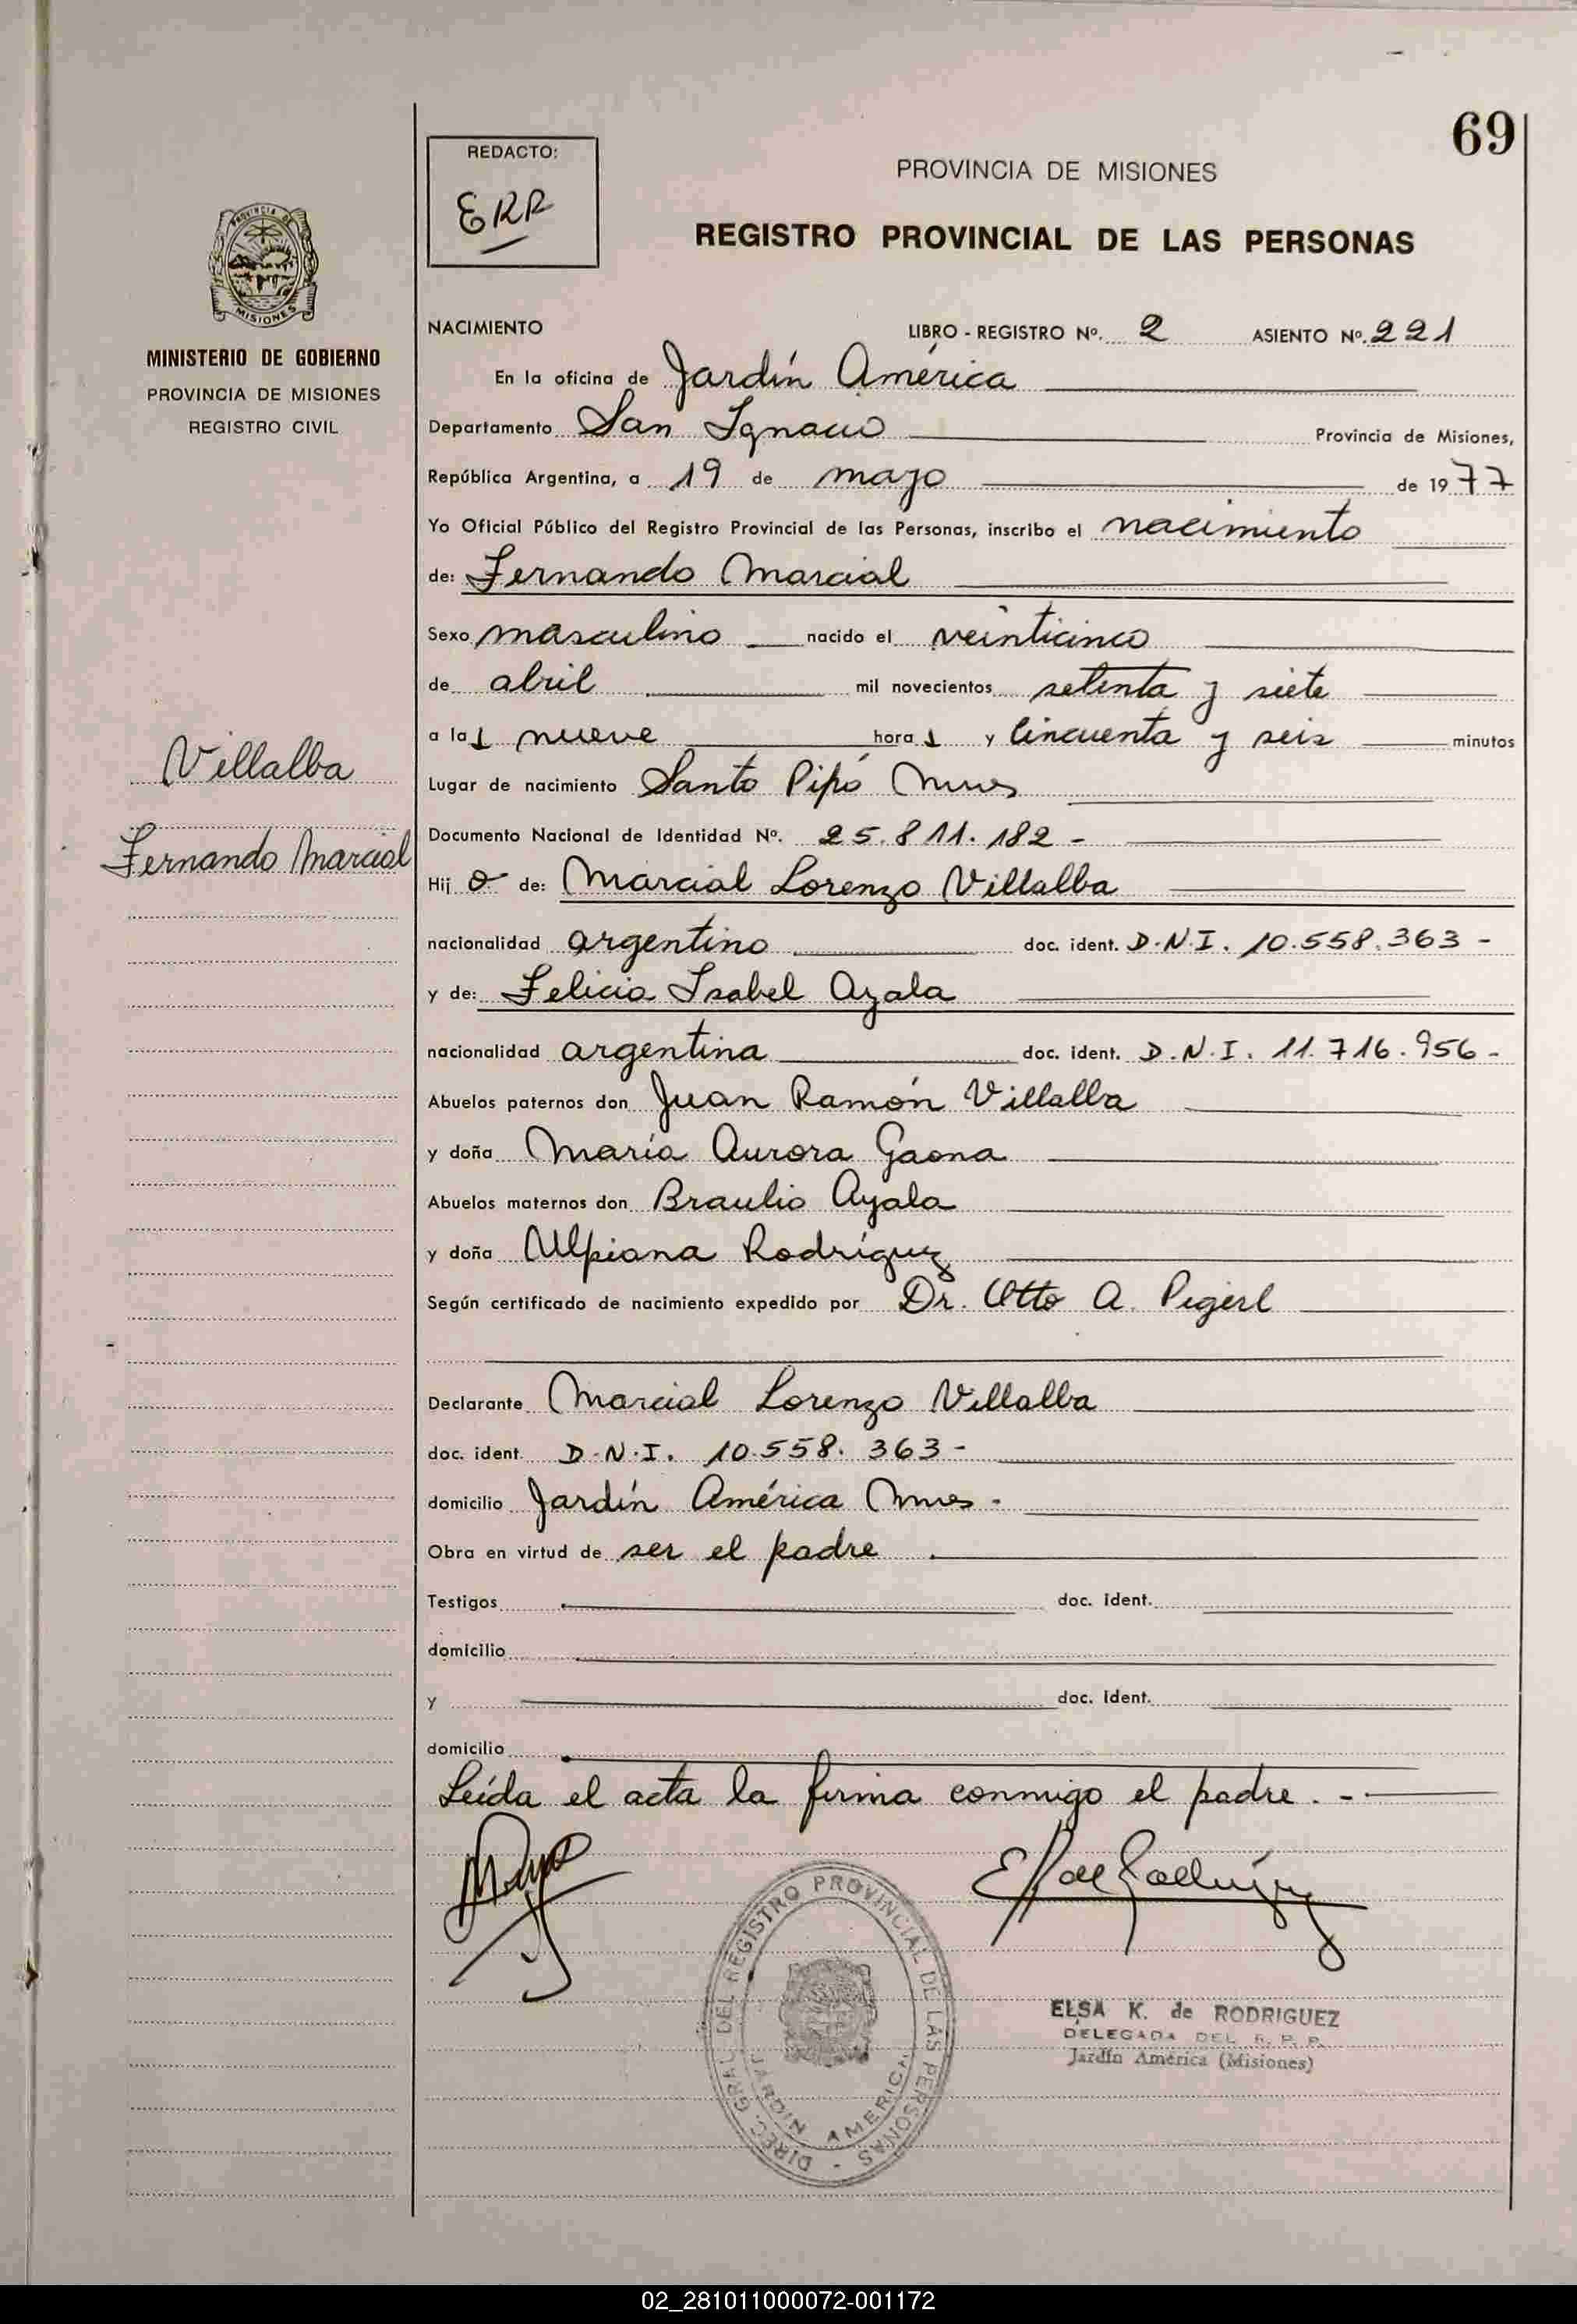 69
REDACTO:
ERR
PROVINCIA DE MISIONES
REGISTRO PROVINCIAL DE LAS PERSONAS
MISIONES
MINISTERIO DE GOBIERNO
PROVINCIA DE MISIONES
REGISTRO CIVIL
Villalba
Fernando Marcial
NACIMIENTO LIBRO - REGISTRO Nº. 2 ASIENTO Nº. 221
En la oficina de Jardín América
Departamento San Ignacio Provincia de Misiones,
República Argentina, a 19 de mayo de 1977
Yo Oficial Público del Registro Provincial de las Personas, inscribo el nacimiento
de: Fernando Marcial
Sexo masculino nacido el veinticinco
de abril mil novecientos setenta y siete
a las nueve horas y cincuenta y seis minutos
Lugar de nacimiento Santo Pipó Mnes
Documento Nacional de Identidad Nº. 25.811.182 -
Hijo de: Marcial Lorenzo Villalba
nacionalidad argentino doc. ident. D.N.I. 10.558.363 -
y de: Felicia Isabel Ayala
nacionalidad argentina doc. ident. D.N.I. 11.716.956 -
Abuelos paternos don Juan Ramón Villalba
y doña María Aurora Gaona
Abuelos maternos don Braulio Ayala
y doña Ulpiana Rodríguez
Según certificado de nacimiento expedido por Dr. Otto A. Pigerl
Declarante Marcial Lorenzo Villalba
doc. ident. D.N.I. 10.558.363 -
domicilio Jardín América Mnes -
Obra en virtud de ser el padre
Testigos doc. ident.
domicilio
y doc. ident.
domicilio
Leída el acta la firma conmigo el padre. -
DIREC. GRAL DEL REGISTRO PROVINCIAL DE LAS PERSONAS -
JARDIN AMERICA
ELSA K. de RODRIGUEZ
DELEGADA DEL R. P. P.
Jardín América (Misiones)
02_281011000072-001172